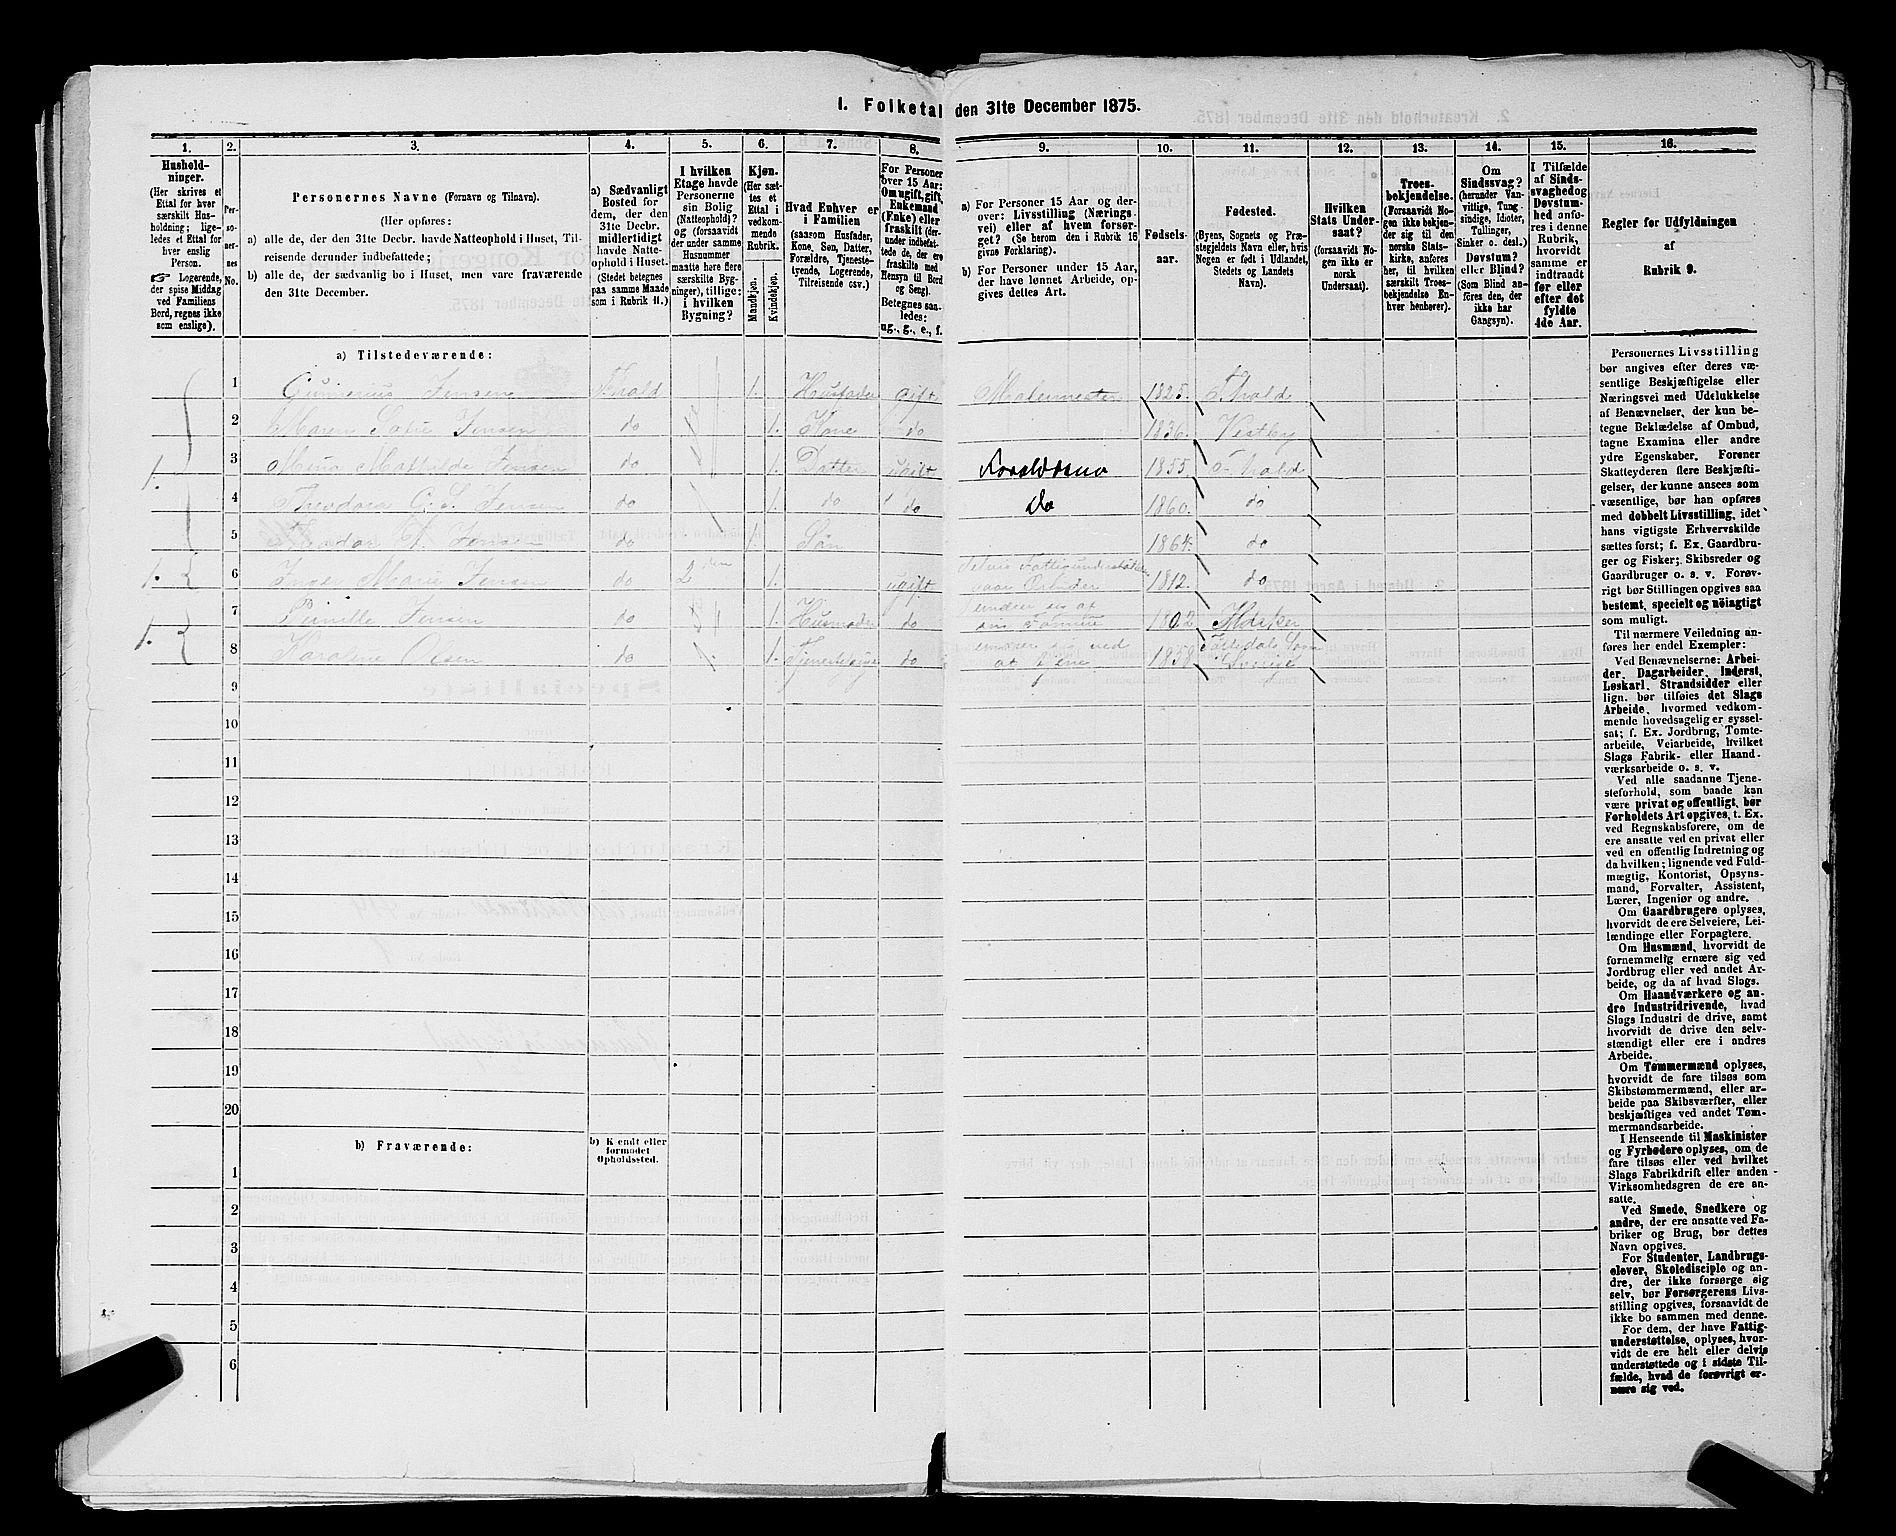 1. Folketal den 31te December 1875.
1.
Hushold-
ninger.
(Her skrives et
Ettal for hver
særskilt Hus-
holdning; lige-
ledes et Ettal for
hver enslig
Person.
☞ Logerende,
der spise Middag
ved Familiens
Bord, regnes ikke
som enslige).
2.
Per-
so-
ner-
nes
No.
3.
Personernes Navne (Fornavn og Tilnavn).
(Her opføres:
a) alle de, der den 31te Decbr. havde Natteophold i Huset, Til-
reisende derunder indbefattede;
b) alle de, der sædvanlig bo i Huset, men vare fraværende
den 31te December.
4.
a) Sædvanligt
Bosted for
dem, der den
31te Decbr.
midlertidigt
havde Natte
ophold i Huset.
(Stedet betegnes
paa samme Maade
som i Rubrik 11.)
5.
I hvilken
Etage havde
Personerne
sin Bolig
(Natteophold)?
og (forsaavidt
der under samme
Husnummer
maatte høre flere
særskilte Byg-
ninger), tillige:
i hvilken
Bygning?
6.
Kjøn.
(Her sæt-
tes et
Ettal i
vedkom-
mende
Rubrik.
Mandkjøn.
Kvindekjøn.
7.
Hvad Enhver er
i Familien
(saasom Husfader,
Kone, Søn, Datter,
Forældre, Tjeneste-
tyende, Logerende,
Tilreisende csv.)
8.
For Personer
over 15 Aar:
Om ugift, gift,
Enkemand
(Enke) eller
fraskilt (der-
under indbefat-
tede de, der ere
fraskilte med
Hensyn til Bord
og Seng).
Betegnes saa-
ledes:
ug., g., e., f.
9.
a) For Personer 15 Aar og der-
over: Livsstilling (Nærings-
vei) eller af hvem forsør-
get? (Se herom den i Rubrik 16
givne Forklaring).
b) For Personer under 15 Aar,
der have lønnet Arbeide, op-
gives dettes Art.
10.
Fødsels-
aar.
11.
Fødested.
(Byens, Sognets og Præ-
stegjeldets Navn eller, hvis
Nogen er født i Udlandet,
Stedets og Landets
Navn).
12.
Hvilken
Stats Under-
saat?
(forsaavidt No-
gen ikke er
norsk
Undersaat).
13.
Troes-
bekjendelse.
(Forsaavidt No-
gen ikke bekjen-
der sig til den
norske Stats-
kirke, anføres
her, til hvilken
særskilt Troes-
bekjendelse En-
hver henhører).
14.
Om
Sindssvag?
(herunder Van-
vittige, Tung-
sindige, Idioter,
Tullinger,
Sinker o. desl.)
Døvstum?
eller Blind?
(Som Blind an-
føres den, der
ikke har
Gangsyn).
15.
I Tilfælde
af Sinds-
svaghed og
Døvstum-
hed anfø-
res i denne
Rubrik,
hvorvidt
samme er
indtraadt
før eller
efter det
fyldte
4de Aar.
16.
Regler for Udfyldningen
af
Rubrik 9.
a) Tilstedeværende:
1 Gunerius Jensen F.hald 1. Husfader gift Malermester 1825. F.hald
2 Maren Sofie Jensen do 1. Kone do 1836. Vestby
1. 3 Mathilde Jensen do 1. Datter ugift 1855. F.hald
4 Theodora C. S. Jensen do 1. do do do 1860. do
5 Jensen do 1. Søn 1864. do
1. 6 Inger Marie Jensen do 2den 1. ugift 1812. do
1. 7 Pernille Jensen do 1. Husmoder do 1802
8 Karoline Olsen do 1. Tjenestepige do at tjene 1858 Sverige
9
10
11
12
13
14
15
16
17
18
19
20
b) Fraværende:
b) K endt eller
formodet
Opholdssted.
1
2
3
4
5
6
Personernes Livsstilling
bør angives efter deres væ-
sentlige Beskjæftigelse eller
Næringsvei med Udelukkelse
af Benævnelser, der kun be-
tegne Beklædelse af Ombud,
tagne Examina eller andre
ydre Egenskaber. Forener
Skatteyderen flere Beskjæfti-
gelser, der kunne ansees som
væsentlige, bør han opføres
med dobbelt Livsstilling, idet
hans vigtigste Erhvervskilde
sættes først; f. Ex. Gaardbru-
ger og Fisker; Skibsreder og
Gaardbruger o. s. v. Forøv-
rigt bør Stillingen opgives saa
bestemt, specielt og nøiagtigt
som muligt.
Til nærmere Veiledning an-
føres her endel Exempler:
Ved Benævnelserne: Arbei-
der, Dagarbeider, Inderst,
Løskarl, Strandsidder eller
lign. bør tilføies det Slags
Arbeide, hvormed vedkom-
mende hovedsagelig er syssel-
sat; f. Ex. Jordbrug, Tomte-
arbeide, Veiarbeide, hvilket
Slags Fabrik- eller Haand-
værksarbeide o. s. v.
Ved alle saadanne Tjene-
steforhold, som baade kan
være privat og offentligt, bør
Forholdets Art opgives, t. Ex.
ved Regnskabsførere, om de
ere ansatte ved en privat eller
ved en offentlig Indretning og
da hvilken; lignende ved Fuld-
mægtig, Kontorist, Opsyns-
mand, Forvalter, Assistent,
Lærer, Ingeniør og andre.
Om Gaardbrugere oplyses,
hvorvidt de ere Selveiere, Lei-
lændinge eller Forpagtere.
Om Husmænd, hvorvidt de
fornemmelig ernære sig ved
Jordbrug eller ved andet Ar-
beide, og da af hvad Slags.
Om Haandværkere og an-
dre Industridrivende, hvad
Slags Industri de drive, samt
hvorvidt de drive den selv-
stændigt eller ere i andres
Arbeide.
Om Tømmermænd oplyses,
hvorvidt de fare tilsøs som
Skibstømmermænd, eller ar-
beide paa Skibsværfter, eller
beskjæftiges ved andet Tøm-
mermandsarbeide.
I Henseende til Maskinister
og Fyrbødere oplyses, om de
fare tilsøs eller ved hvilket
Slags Fabrikdrift eller anden
Virksomhedsgren de ere an-
satte.
Ved Smede, Snedkere og
andre, der ere ansatte ved Fa-
briker og Brug, bør dettes
Navn opgives.
For Studenter, Landbrugs-
elever, Skoledisciple og an-
dre, der ikke forsørge sig
selv, bør Forsørgerens Livs-
stilling opgives, forsaavidt de
ikke bo sammen med denne.
For dem, der have Fattig-
understøttelse, oplyses, hvor-
vidt de ere helt eller delvis
understøttede og i sidste Til-
fælde, hvad de forøvrigt er-
nære sig ved.